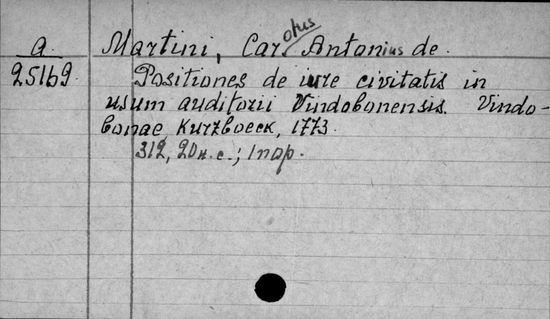 a
25169
Martini, Carolus Antonius de.
Positiones de iure civitatis in
usum auditorii Vindobonensis. Vindo-
bonae, Kurzboeck, 1773.
312, 20 н. с.;